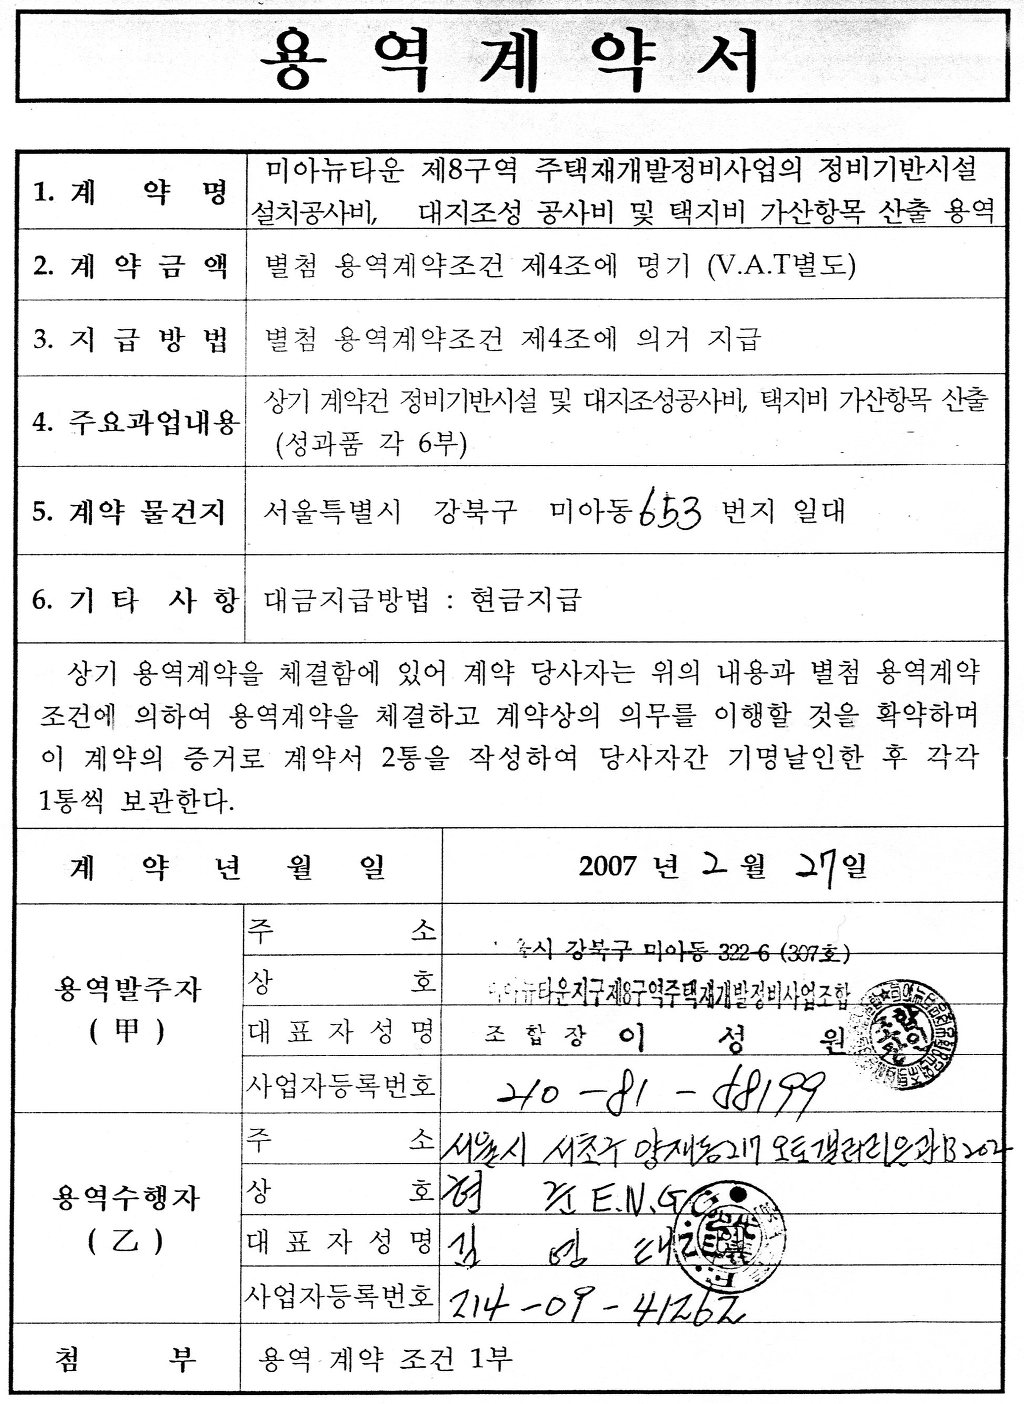 용역계약서
1. 계 약 명
미아뉴타운 제8구역 주택재개발정비사업의 정비기반시설
설치공사비, 대지조성 공사비 및 택지비 가산항목 산출 용역
2. 계 약 금 액
별첨 용역계약조건 제4조에 명기 (V.A.T별도)
3. 지 급 방 법
별첨 용역계약조건 제4조에 의거 지급
4. 주요과업내용
상기 계약건 정비기반시설 및 대지조성공사비, 택지비 가산항목 산출
(성과품 각 6부)
5. 계약 물건지
서울특별시 강북구 미아동 653 번지 일대
6. 기 타 사 항
대금지급방법 : 현금지급
상기 용역계약을 체결함에 있어 계약 당사자는 위의 내용과 별첨 용역계약
조건에 의하여 용역계약을 체결하고 계약상의 의무를 이행할 것을 확약하며
이 계약의 증거로 계약서 2통을 작성하여 당사자간 기명날인한 후 각각
1통씩 보관한다.
계 약 년 월 일
2007 년 2 월 27일
용역발주자
( 甲 )
주 소
시 강북구 미아동 322-6 (307호)
상 호
미아뉴타운지구제8구역주택재개발정비사업조합
대 표 자 성 명
조 합 장 이 성 원
사업자등록번호
210-81-68199
용역수행자
( 乙 )
주 소
서울시 서초구 양재동 217 오토갤러리 B202
상 호
E.N.G
대 표 자 성 명
김 영 태
사업자등록번호
214-09-41262
첨 부
용역 계약 조건 1부